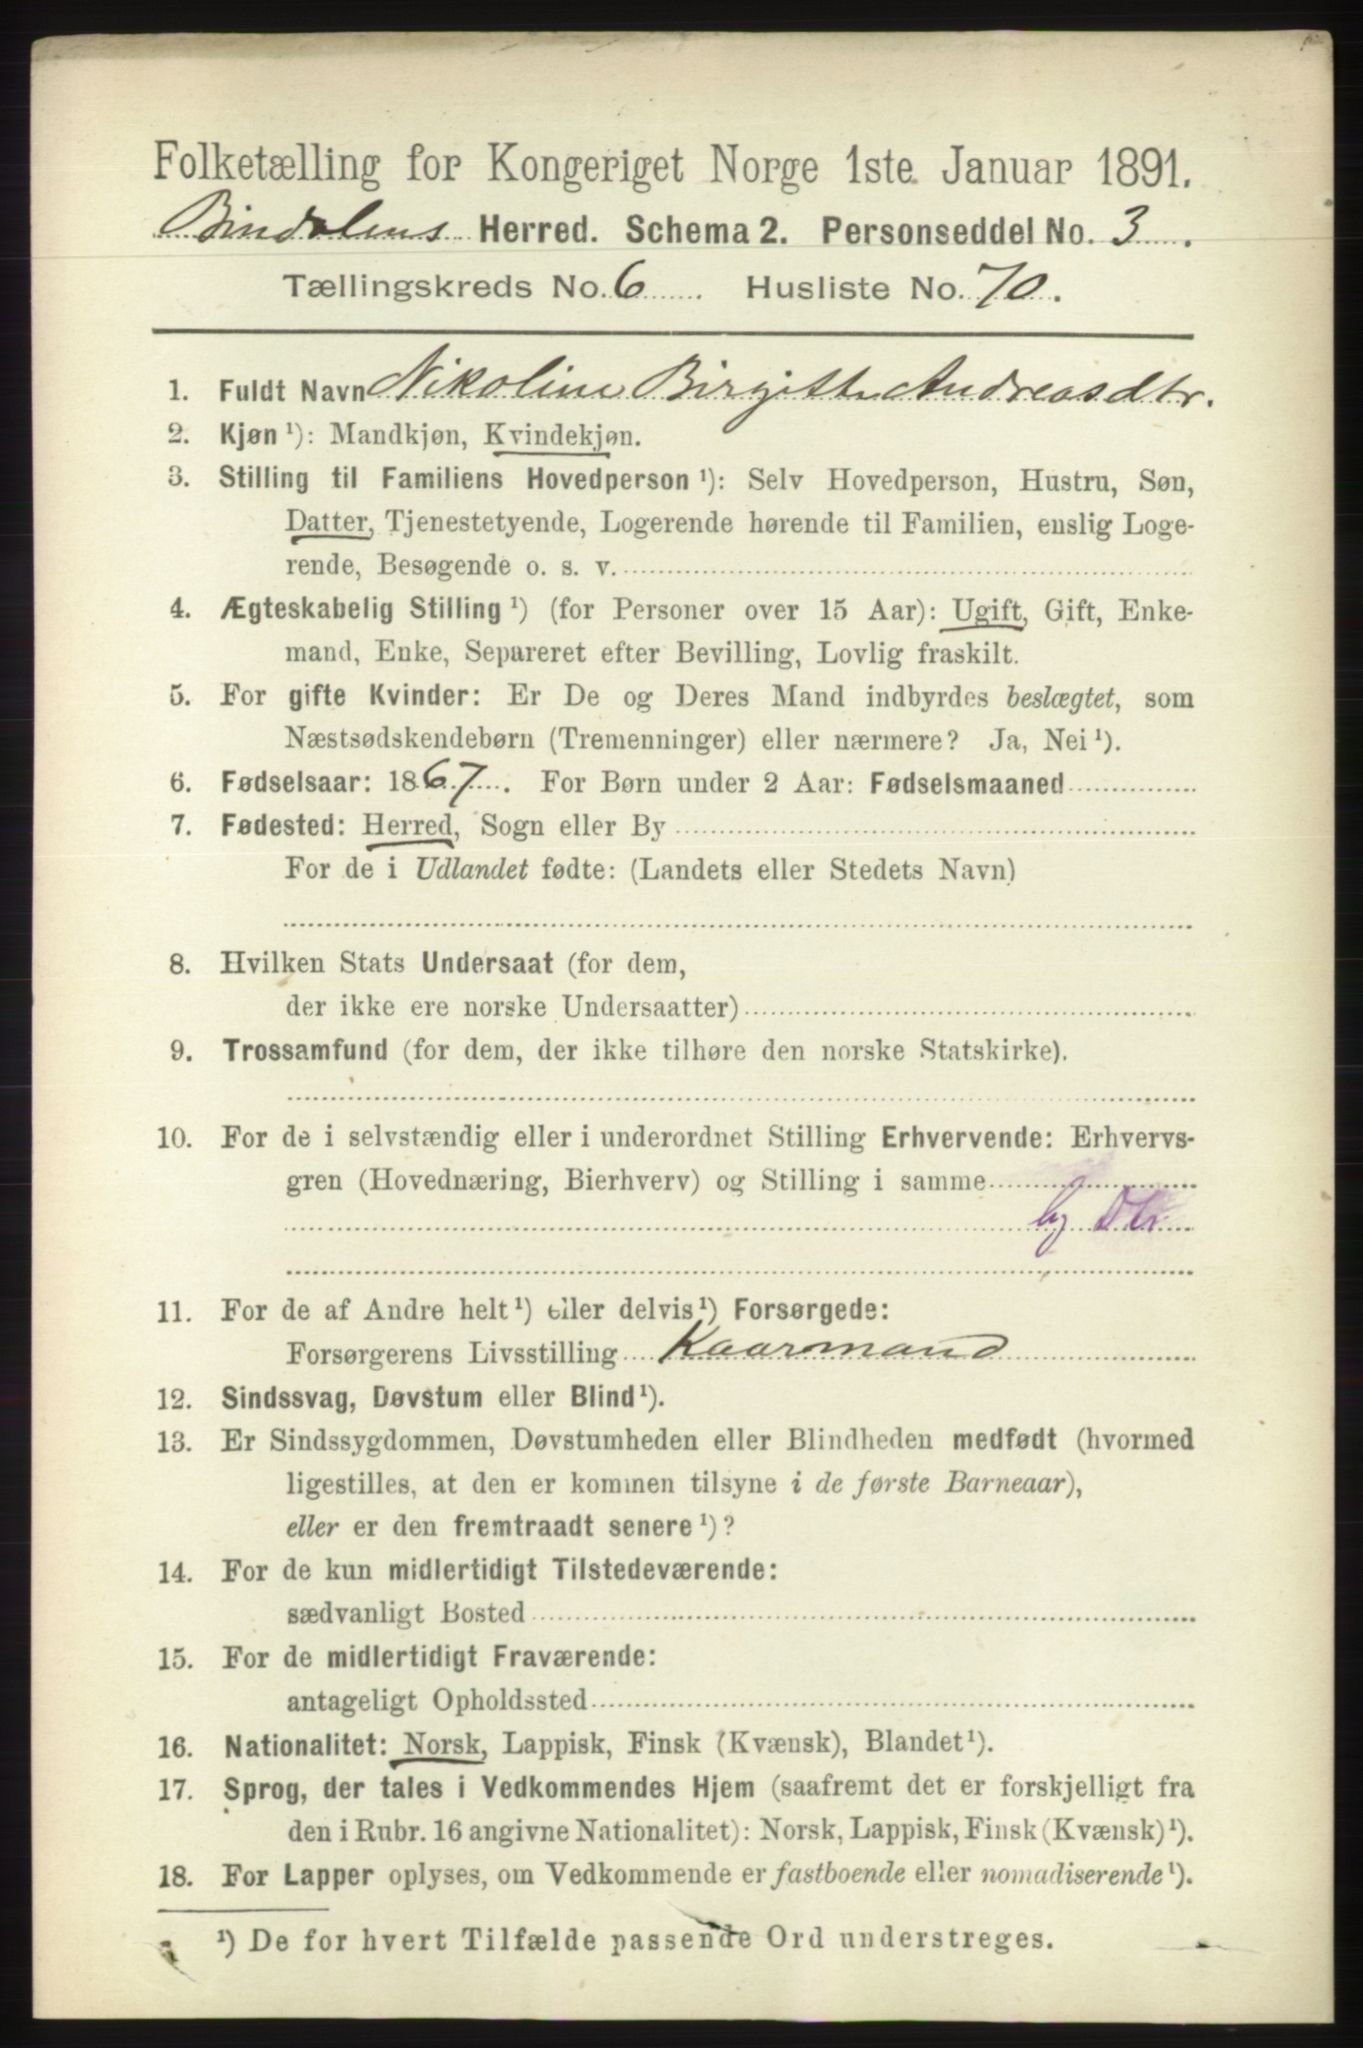 Folketælling for Kongeriget Norge 1ste Januar 1891.
Bindalens Herred. Schema 2. Personseddel No. 3.
Tællingskreds No. 6 Husliste No. 70.
1. Fuldt Navn Nikoline Birgitte Andreasdtr.
2. Kjøn ¹): Mandkjøn, Kvindekjøn.
3. Stilling til Familiens Hovedperson ¹): Selv Hovedperson, Hustru, Søn,
Datter, Tjenestetyende, Logerende hørende til Familien, enslig Loge-
rende, Besøgende o. s. v.
4. Ægteskabelig Stilling ¹) (for Personer over 15 Aar): Ugift, Gift, Enke-
mand, Enke, Separeret efter Bevilling, Lovlig fraskilt.
5. For gifte Kvinder: Er De og Deres Mand indbyrdes beslægtet, som
Næstsødskendebørn (Tremenninger) eller nærmere? Ja, Nei ¹).
6. Fødselsaar: 1867. For Børn under 2 Aar: Fødselsmaaned
7. Fødested: Herred, Sogn eller By
For de i Udlandet fødte: (Landets eller Stedets Navn)
8. Hvilken Stats Undersaat (for dem,
der ikke ere norske Undersaatter)
9. Trossamfund (for dem, der ikke tilhøre den norske Statskirke).
10. For de i selvstændig eller i underordnet Stilling Erhvervende: Erhvervs-
gren (Hovednæring, Bierhverv) og Stilling i samme
11. For de af Andre helt ¹) eller delvis ¹) Forsørgede:
Forsørgerens Livsstilling Kaarmand
12. Sindssvag, Døvstum eller Blind ¹).
13. Er Sindssygdommen, Døvstumheden eller Blindheden medfødt (hvormed
ligestilles, at den er kommen tilsyne i de første Barneaar),
eller er den fremtraadt senere ¹)?
14. For de kun midlertidigt Tilstedeværende:
sædvanligt Bosted
15. For de midlertidigt Fraværende:
antageligt Opholdssted
16. Nationalitet: Norsk, Lappisk, Finsk (Kvænsk), Blandet ¹).
17. Sprog, der tales i Vedkommendes Hjem (saafremt det er forskjelligt fra
den i Rubr. 16 angivne Nationalitet): Norsk, Lappisk, Finsk (Kvænsk) ¹).
18. For Lapper oplyses, om Vedkommende er fastboende eller nomadiserende ¹).
¹) De for hvert Tilfælde passende Ord understreges.